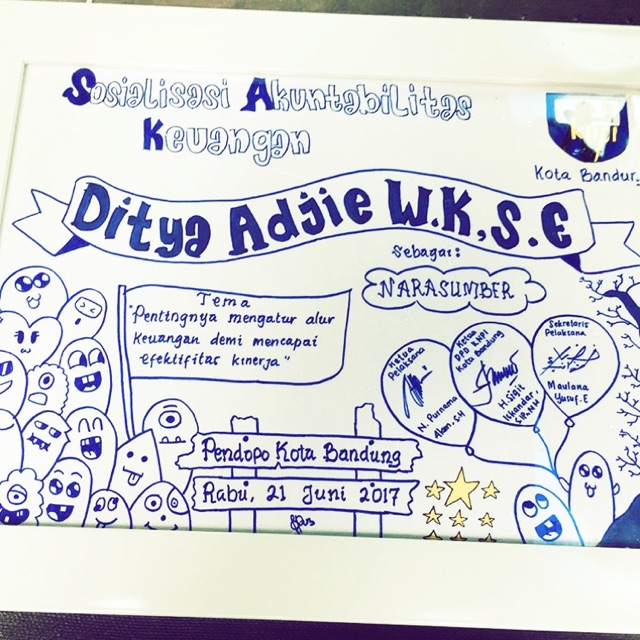 Sosialisasi Akuntabilitas
Keuangan
Kota Bandun
Ditya Adjie W.K,S.E
Sebagai:
NARASUMBER
Tema
"Pentingnya mengatur alur
Keuangan demi mencapai
efektifitas kinerja"
Ketua
Pelaksana
N. Purnama
Alam, S.H
Ketua
DPD KNPI
Kota Bandung
H. Sigit
Iskandar,
Sekretaris
Pelaksana
Maulana
Yusuf.E
Pendopo Kota Bandung
Rabu, 21 Juni 2017